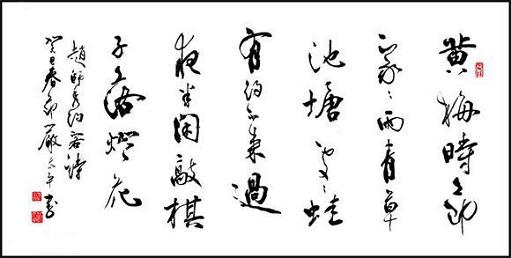 黄梅時節
家々雨青草
池塘處々蛙
有約不來過
夜半閑敲棋
子落燈花
趙師秀約客詩
癸巳春節嚴平書